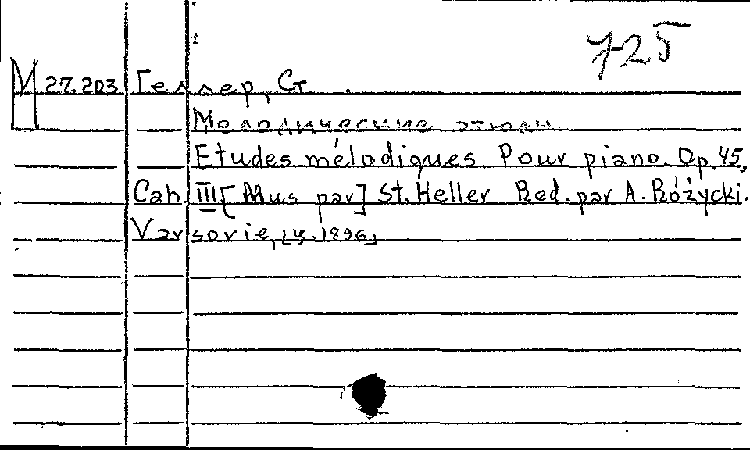 725
М 27.203 Геллер, Ст.
Мелодические этюды.
Etudes mélodiques Pour piano. Op. 45,
Cah. III [Mus par] St. Heller Red. par A. Różycki.
Varsovie, 1896,